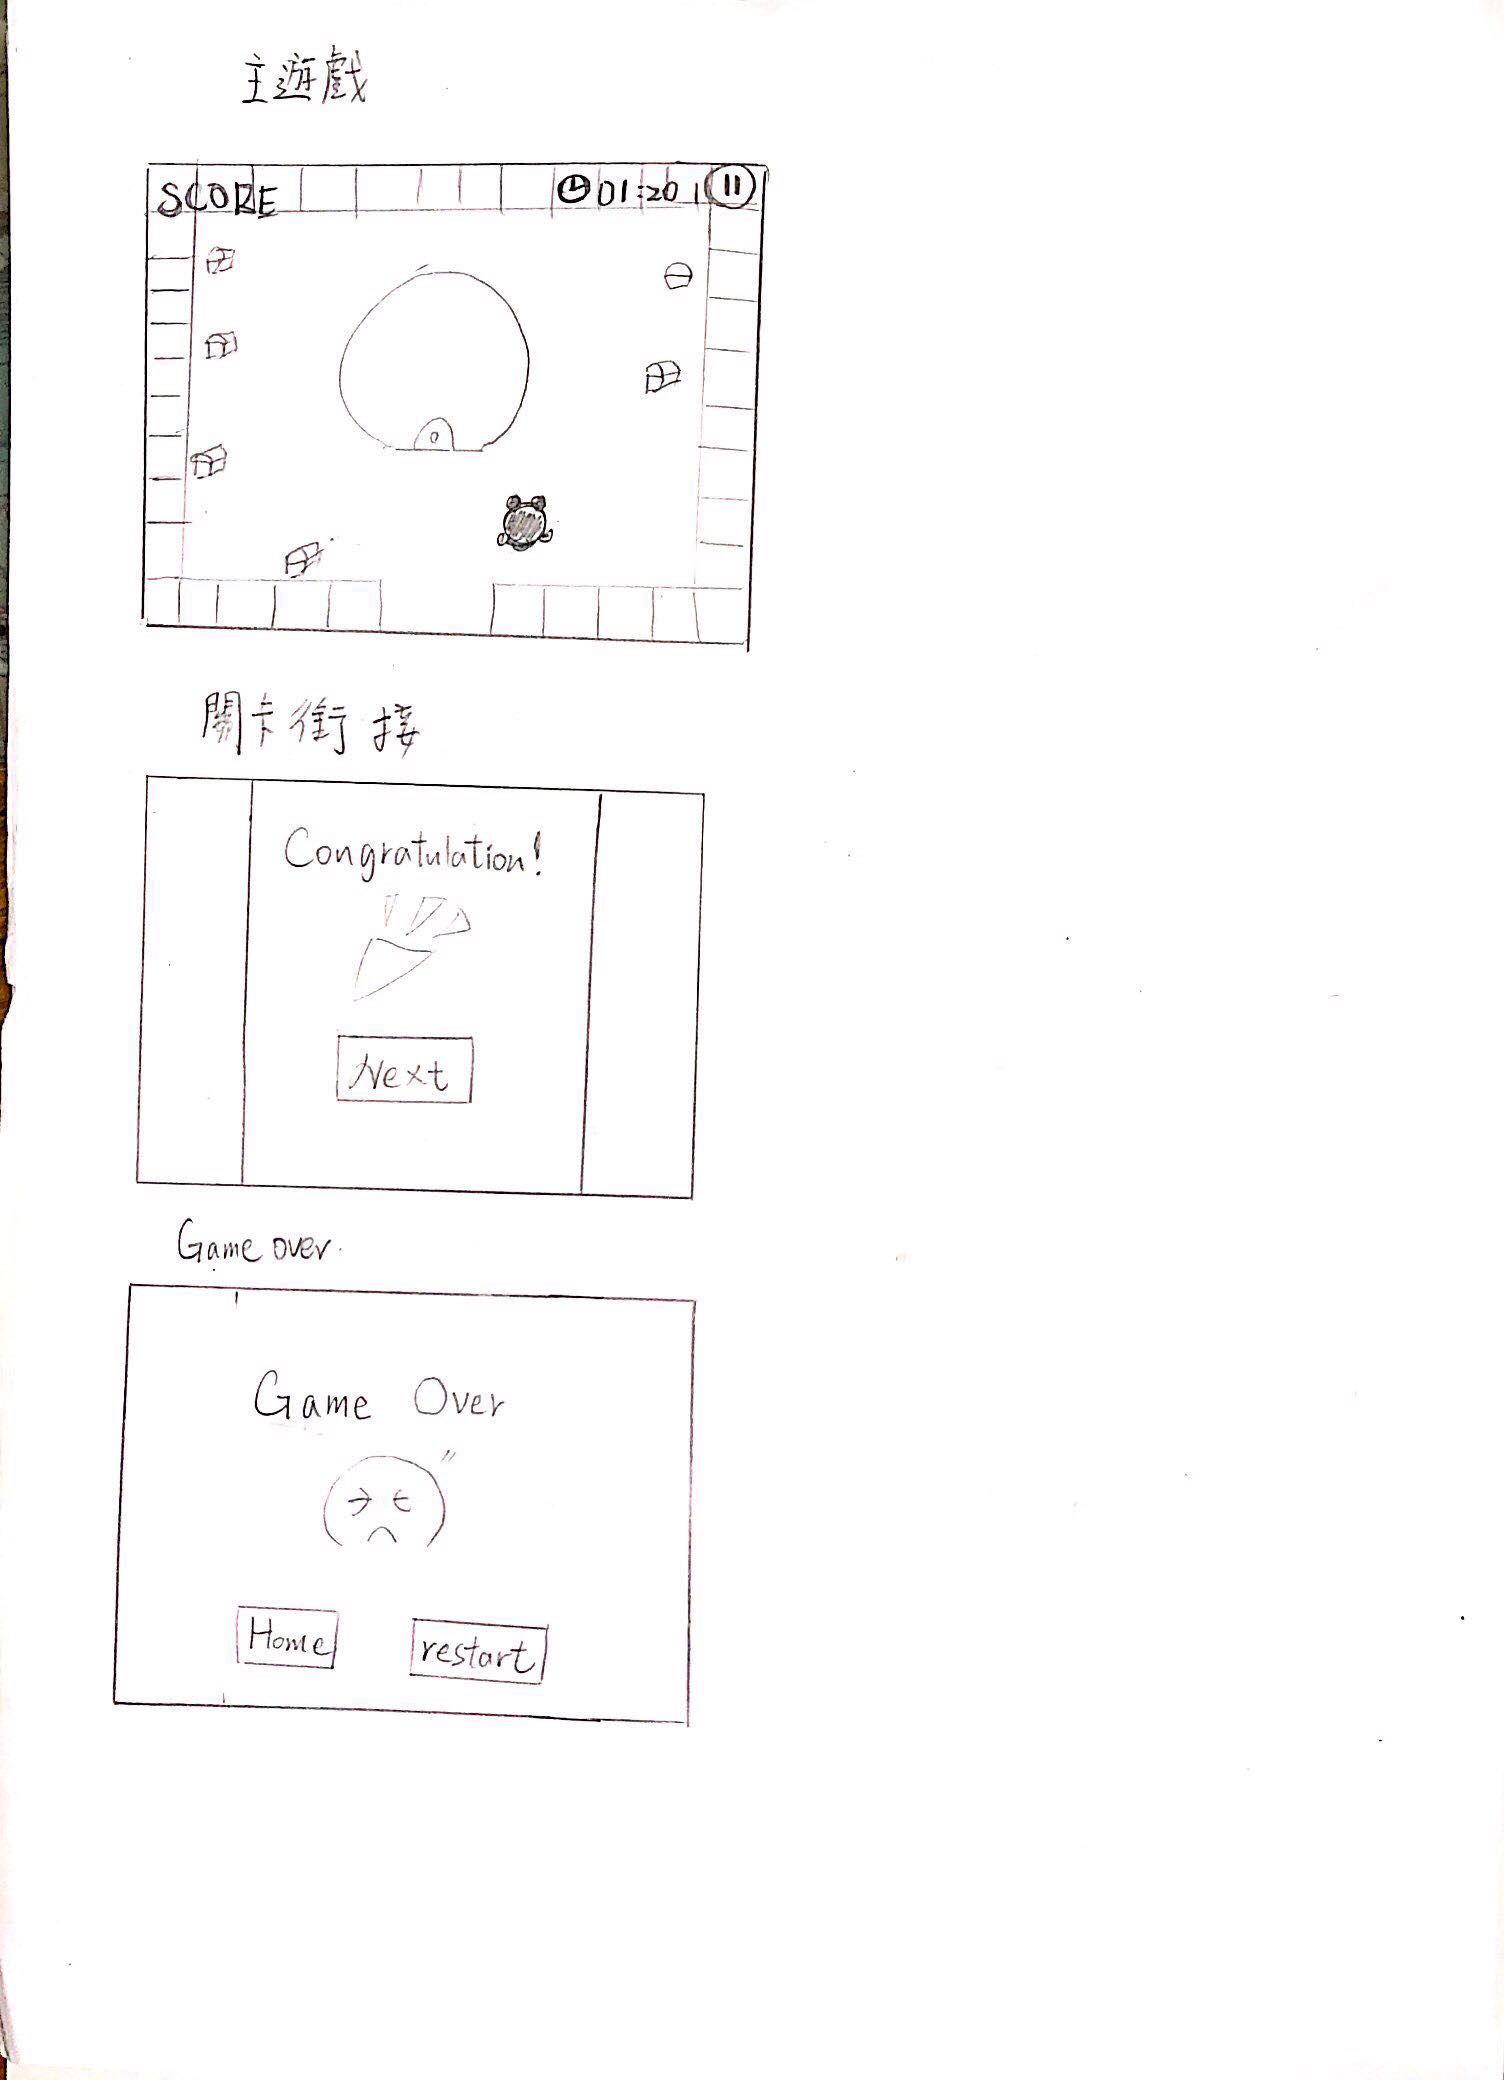 主遊戲
SCORE 01:20
關卡銜接
Congratulation!
Next
Game over.
Game Over
Home restart